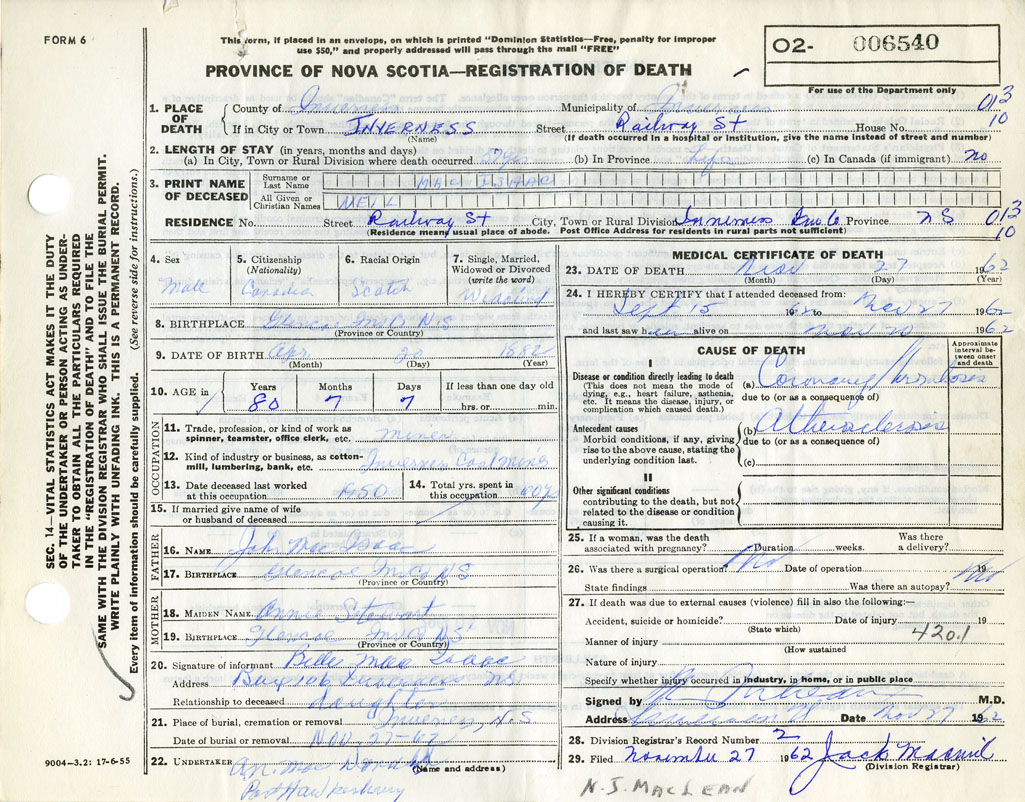 FORM 6
This form, if placed in an envelope, on which is printed "Dominion Statistics—Free, penalty for improper
use $50," and properly addressed will pass through the mail "FREE"
PROVINCE OF NOVA SCOTIA—REGISTRATION OF DEATH
O2- 006540
For use of the Department only
SEC. 14—VITAL STATISTICS ACT MAKES IT THE DUTY
OF THE UNDERTAKER OR PERSON ACTING AS UNDER-
TAKER TO OBTAIN ALL THE PARTICULARS REQUIRED
IN THE "REGISTRATION OF DEATH" AND TO FILE THE
SAME WITH THE DIVISION REGISTRAR WHO SHALL ISSUE THE BURIAL PERMIT.
WRITE PLAINLY WITH UNFADING INK. THIS IS A PERMANENT RECORD.
Every item of information should be carefully supplied. (See reverse side for instructions.)
1. PLACE OF DEATH
County of Inverness Municipality of Inverness 013
If in City or Town INVERNESS Street Railway St House No. 10
(Name) (If death occurred in a hospital or institution, give the name instead of street and number)
2. LENGTH OF STAY (in years, months and days)
(a) In City, Town or Rural Division where death occurred (b) In Province Life (c) In Canada (if immigrant) no
3. PRINT NAME OF DECEASED
Surname or Last Name MAC ISAAC
All Given or Christian Names NEIL
RESIDENCE No. Street Railway St City, Town or Rural Division Inverness Inv Co Province NS 013
(Residence means usual place of abode. Post Office Address for residents in rural parts not sufficient) 10
4. Sex Male
5. Citizenship (Nationality) Canadian
6. Racial Origin Scotch
7. Single, Married, Widowed or Divorced (write the word) Widowed
8. BIRTHPLACE Glencoe Mills NS
(Province or Country)
9. DATE OF BIRTH Apr 20 1882
(Month) (Day) (Year)
10. AGE in Years 80 Months 7 Days 7 If less than one day old hrs. or min.
OCCUPATION
11. Trade, profession, or kind of work as spinner, teamster, office clerk, etc. miner
12. Kind of industry or business, as cotton-mill, lumbering, bank, etc. Inverness Coal Mines
13. Date deceased last worked at this occupation 1950
14. Total yrs. spent in this occupation
15. If married give name of wife or husband of deceased
FATHER
16. NAME John Mac Isaac
17. BIRTHPLACE Glencoe Mills NS
(Province or Country)
MOTHER
18. MAIDEN NAME Annie Stewart
19. BIRTHPLACE Glencoe Mills NS
(Province or Country)
20. Signature of informant Belle Mac Isaac
Address Box Inverness NS
Relationship to deceased daughter
21. Place of burial, cremation or removal Inverness, N.S.
Date of burial or removal Nov. 27-62
22. UNDERTAKER Mac Donald
(Name and address)
Port Hawkesbury
9004—3.2: 17-6-55
MEDICAL CERTIFICATE OF DEATH
23. DATE OF DEATH Nov 27 1962
(Month) (Day) (Year)
24. I HEREBY CERTIFY that I attended deceased from:
Sept 15 1962 to Nov 27 1962
and last saw him alive on Nov 20 1962
CAUSE OF DEATH
Approximate interval between onset and death
I
Disease or condition directly leading to death
(This does not mean the mode of dying, e.g., heart failure, asthenia, etc. It means the disease, injury, or complication which caused death.)
(a) Coronary Thrombosis
due to (or as a consequence of)
Antecedent causes
Morbid conditions, if any, giving rise to the above cause, stating the underlying condition last.
(b) Atherosclerosis
due to (or as a consequence of)
(c)
II
Other significant conditions
contributing to the death, but not related to the disease or condition causing it.
25. If a woman, was the death associated with pregnancy? Duration weeks. Was there a delivery?
26. Was there a surgical operation? No Date of operation 19
State findings Was there an autopsy? No
27. If death was due to external causes (violence) fill in also the following:—
Accident, suicide or homicide? Date of injury 19
(State which)
420.1
Manner of injury
(How sustained
Nature of injury
Specify whether injury occurred in industry, in home, or in public place
Signed by M.D.
Address Date Nov 27 1962
28. Division Registrar's Record Number 2
29. Filed November 27 1962 Jack
(Division Registrar)
N.J. MACLEAN